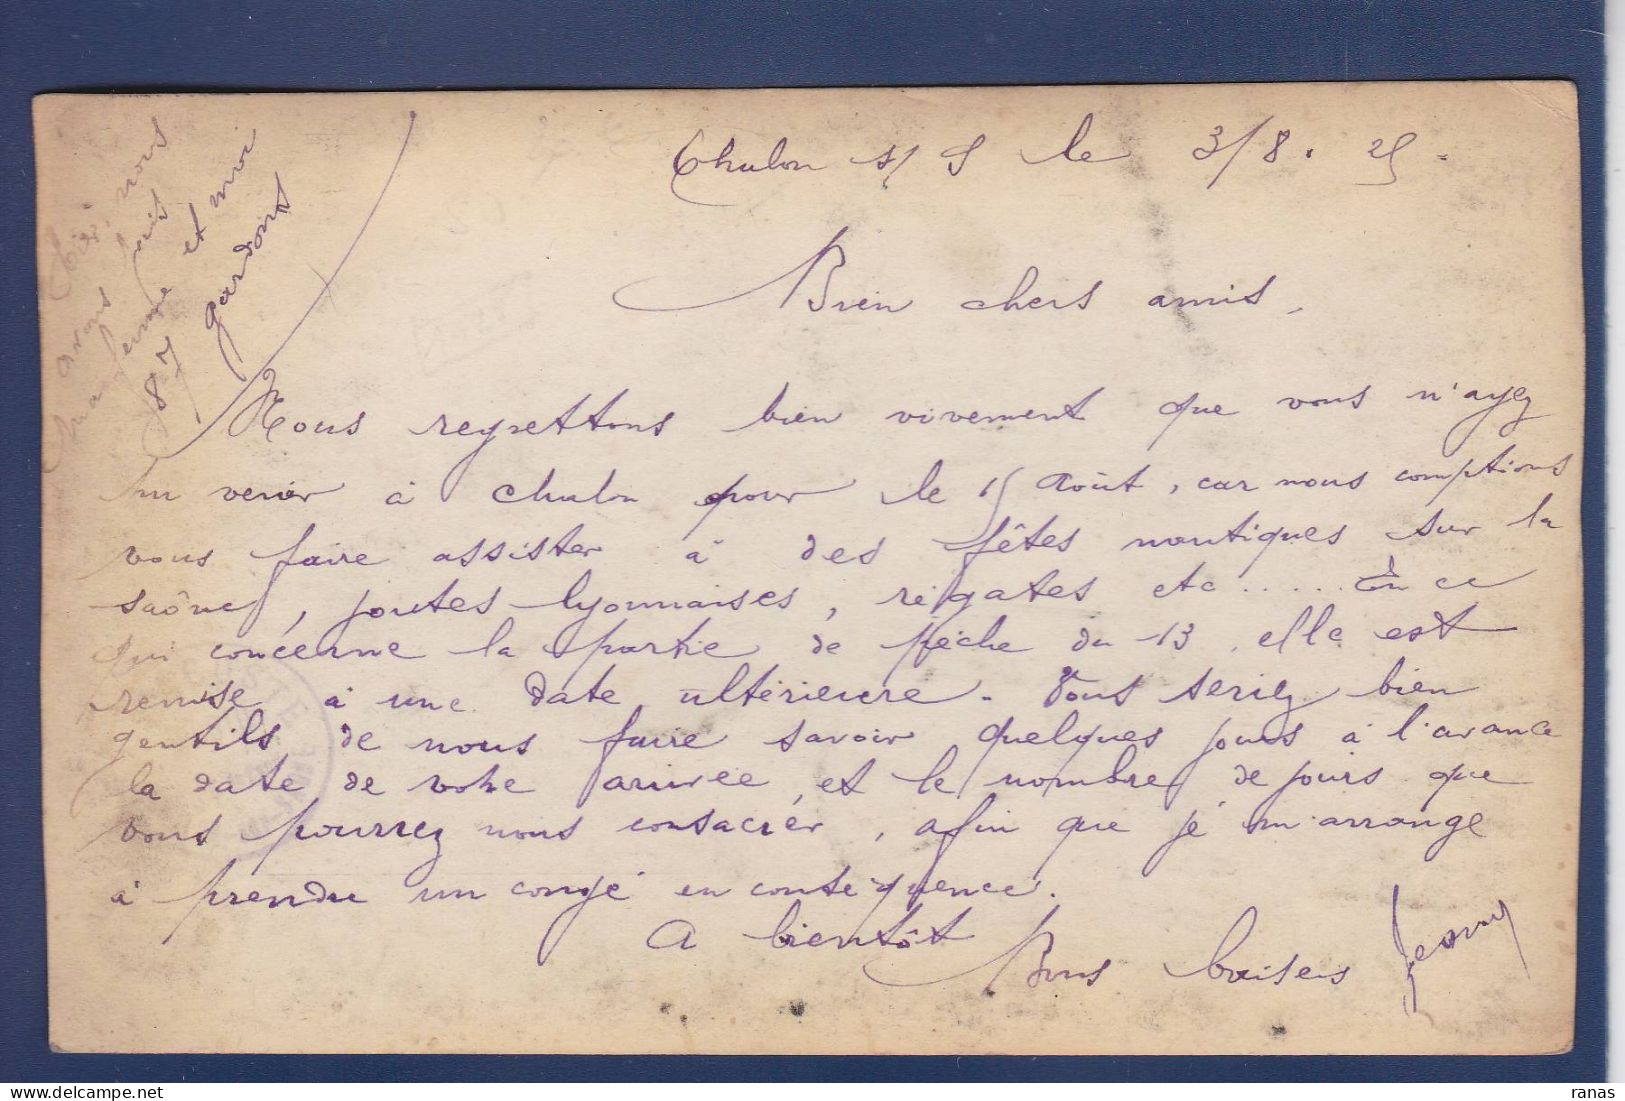 Chalon s/S le 3/8. 25.
Hier, nous
avons pris
ma femme et moi
87 gardons
Bien chers amis,
Nous regrettons bien vivement que vous n'ayez
pu venir à Chalon pour le 15 Août, car nous comptions
vous faire assister à des fêtes nautiques sur la
saône, joutes lyonnaises, régates etc ..... En ce
qui concerne la partie de pêche du 13, elle est
remise à une date ultérieure. Vous seriez bien
gentils de nous faire savoir quelques jours à l'avance
la date de votre arrivée, et le nombre de jours que
vous pourrez nous consacrer, afin que je m'arrange
à prendre un congé en conséquence.
A bientôt
Bons baisers
ranas